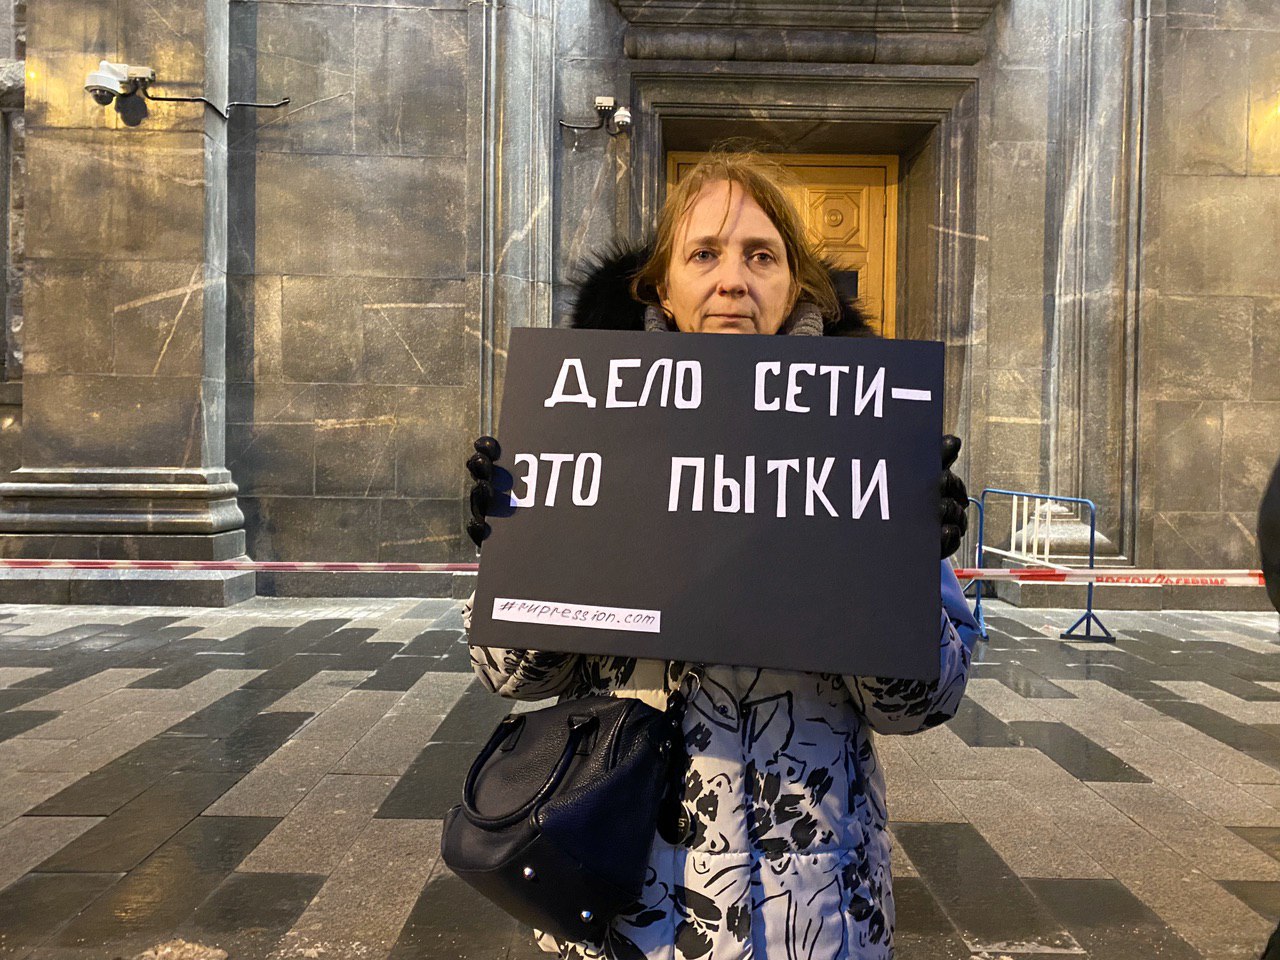 ДЕЛО СЕТИ—
ЭТО ПЫТКИ
#rupression.com
ВОСТОК-СЕРВИС